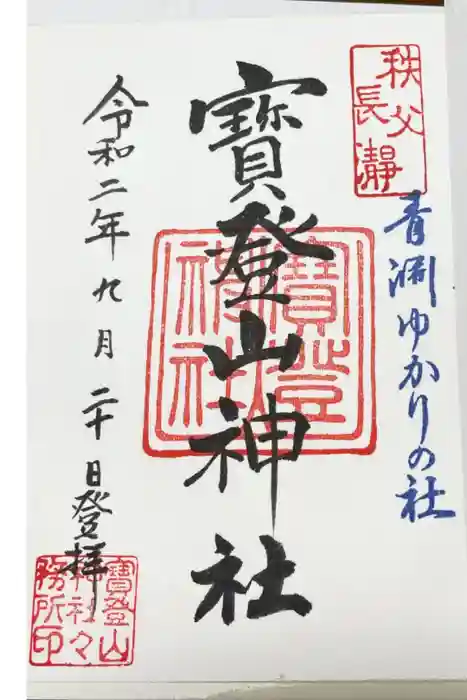 秩父
長瀞
青渊ゆかりの社
寶登山神社
寶登山
神社
令和二年九月二十日登拝
寶登山
神社々
務所印